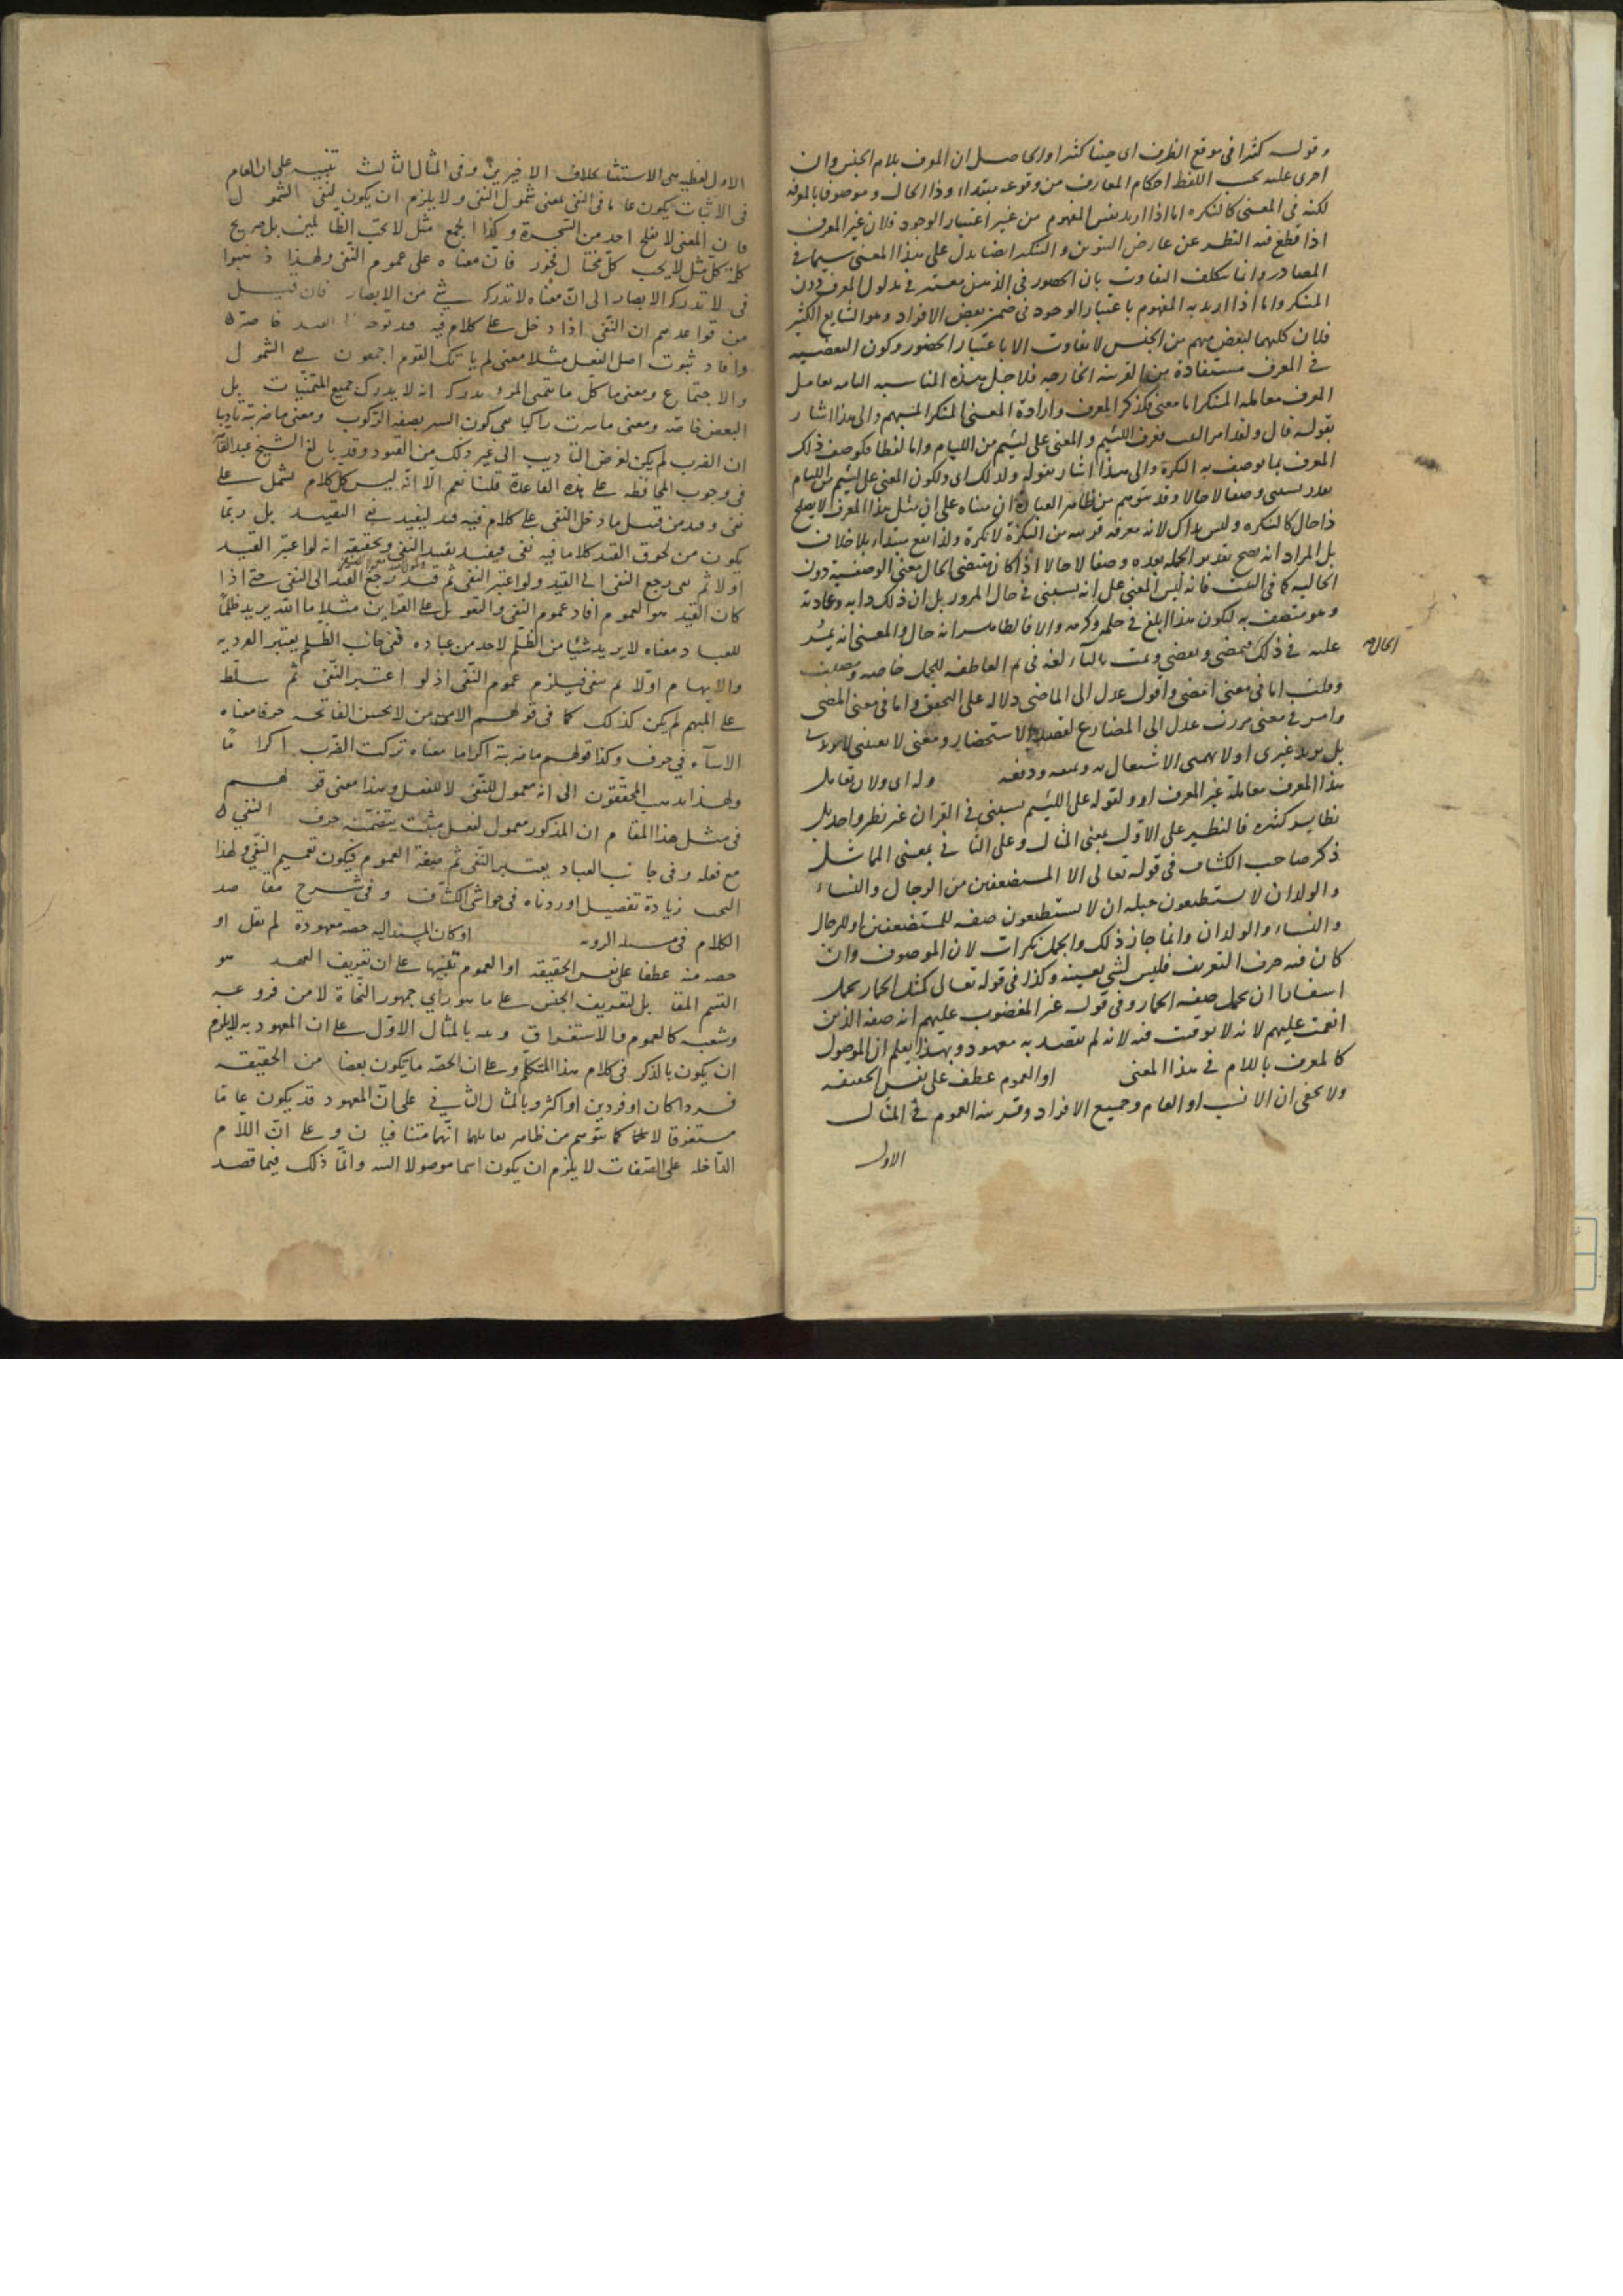 وقوله كثيرا في موقع الظرف اى حينا كثيرا والحاصل ان المعرف بلام الجنس وان
اجرى عليه بحسب اللفظ احكام المعارف من وقوعه مبتداء وذا الحال وموصوفا بالمعرفة
لكنه في المعنى كالنكرة اما اذا اريد نفس المفهوم من غير اعتبار الوجود فلان غير المعرف
اذا قطع فيه النظر عن عارض التنوين والتنكير ايضا يدل على هذا المعنى سيما في
المصادر وانما يتكلف التفاوت بان الحضور في الذهن معتبر في مدلول المعرف دون
المنكر واما اذا اريد به المفهوم باعتبار الوجود في ضمن بعض الافراد وهو الشايع الكثير
فلان كليهما لبعض مبهم من الجنس لا تفاوت الا باعتبار الحضور وكون البعضية
في المعرف مستفادة من القرينة الخارجية فلاجل هذه المناسبة التامة يعامل
المعرف معاملة المنكر اما معنى فكذكر المعرف وارادة المعنى المنكر المبهم والى هذا اشار
بقوله قال ولقد امر البيت يعرف اللئيم والمعنى على لئيم من اللئام واما لفظا فكوصف ذلك
المعرف بما يوصف به النكرة والى هذا اشار بقوله ولذلك اى ولكون المعنى على لئيم من اللئام
يقدر يسبنى وصفا لا حالا وقد يتوهم من ظاهر العبارة ان مبناه على ان مثل هذا المعرف لا يصلح
ذا حال كالنكرة وليس بذاك لانه معرفة قريبة من النكرة لا نكرة ولذا يقع مبتداء بلا خلاف
بل المراد انه يصح تقدير الجملة بعده وصفا لا حالا اذا كان مقتضى الحال معنى الوصفية دون
الحالية كما في البيت فانه ليس المعنى على انه يسبنى في حال المرور بل ان ذلك دابه وعادته
وهو متصف به ليكون هذا ابلغ في حلمه وكرمه والا فالظاهر انه حال والمعنى انه يمر
عليه في ذلك الحال فمضى ويمضى وثمت بالتاء لغة في ثم العاطفة للجمل خاصة ومضيت
وقلت اما في معنى امضى واقول عدل الى الماضى دلالة على التحقق واما في معنى المضى
وامر في معنى مررت عدل الى المضارع لقصد الاستحضار ومعنى لا يعنينى لا يريدنى
بل يريد غيرى او لا يهمنى الاشتغال به ودفعه وله اى ولان تعامل
هذا المعرف معاملة غير المعرف او ولقوله على اللئيم يسبنى في القران غير نظير واحد بل
نظاير كثيرة فالنظير على الاول بمعنى المثال وعلى الثانى بمعنى المماثل
ذكر صاحب الكشاف في قوله تعالى الا المستضعفين من الرجال والنساء
والولدان لا يستطيعون حيلة ان لا يستطيعون صفة للمستضعفين او للرجال
والنساء والولدان وانما جاز ذلك والجمل نكرات لان الموصوف وان
كان فيه حرف التعريف فليس لشئ بعينه وكذا في قوله تعالى كمثل الحمار يحمل
اسفارا ان يحمل صفة الحمار وفي قوله غير المغضوب عليهم انه صفة الذين
انعمت عليهم لانه لا توقيت فيه لانه لم يقصد به معهود وبهذا يعلم ان الموصول
كالمعرف باللام في هذا المعنى او العموم عطف على نفس الحقيقة
ولا يخفى ان الانسب او العام وجميع الافراد وقرينة العموم في المثال
الاول
الاول لفظية هى الاستثنا بخلاف الاخيرين وفى المثال الثالث تنبيه على ان العام
فى الاثبات يكون عاما فى النفى بمعنى شمول النفى ولا يلزم ان يكون لنفى الشمول
فان المعنى لا يفلح احد من السحرة وكذا الجمع مثل لا يحب الظالمين بل صريح
كلمة كل مثل لا يحب كل مختال فخور فان معناه على عموم النفى ولهذا ذهبوا
فى لا تدركه الابصار الى ان معناه لا تدركه شئ من الابصار فان قيل
من قواعدهم ان النفى اذا دخل على كلام فيه قيد توجه الى القيد خاصة
وافاد ثبوت اصل الفعل مثلا معنى لم ياتك القوم اجمعون نفى الشمول
والاجتماع ومعنى ما كل ما يتمنى المرء يدركه انه لا يدرك جميع المتمنيات بل
البعض خاصة ومعنى ما سرت راكبا نفى كون السير بصفة الركوب ومعنى ما ضربته تاديبا
ان الضرب لم يكن لغرض التاديب الى غير ذلك من القيود وقد بالغ الشيخ عبد القاهر
فى وجوب المحافظة على هذه القاعدة قلنا نعم الا انه ليس كل كلام يشتمل على
نفى وقيد من قبيل ما دخل النفى على كلام فيه قيد ليفيد نفى التقييد بل ربما
يكون من لحوق القيد كلاما فيه نفى فيفيد تقييد النفى وتحقيقه انه لو اعتبر القيد
اولا ثم نفى رجع النفى الى القيد ولو اعتبر النفى ثم قيد رجع القيد الى النفى حتى اذا
كان القيد هو العموم افاد عموم النفى والتعويل على القراين مثلا ما الله يريد ظلما
للعباد معناه لا يريد شيئا من الظلم لاحد من عباده ففى جانب الظلم يعتبر الفردية
والابهام اولا ثم ينفى فيلزم عموم النفى اذ لو اعتبر النفى ثم سلط
على المبهم لم يكن كذلك كما فى قولهم الامى من لا يحسن الفاتحة حرفا معناه
الاساءة فى حرف وكذا قولهم ما ضربته اكراما معناه تركت الضرب اكراما
ولهذا يذهب المحققون الى انه معمول للنفى لا للفعل وهذا معنى قولهم
فى مثل هذا المقام ان المذكور معمول لفعل مثبت يتضمنه حرف النفى
مع فعله وفى جانب العباد يعتبر النفى ثم صيغة العموم فيكون تعميم النفى ولهذا
البحث زيادة تفصيل اوردناه فى حواشى الكشاف وفى شرح مقاصد
الكلام فى مسئلة الروية او كان المسند اليه حصة معهودة لم يقل او
حصة منه عطفا على نفس الحقيقة او العموم تنبيها على ان تعريف العهد هو
القسم المقابل لتعريف الجنس على ما هو راي جمهور النحاة لا من فروعه
وشعبه كالعموم والاستغراق ونبه بالمثال الاول على ان المعهود به لا يلزم
ان يكون بالذكر فى كلام هذا المتكلم وعلى ان الحصة ما يكون بعضا من الحقيقة
فردا كان او فردين او اكثر وبالمثال الثانى على ان المعهود قد يكون عاما
مستغرقا لا كما يتوهم من ظاهر تقابلهما انهما متنافيان وعلى ان اللام
الداخلة على الصفات لا يلزم ان يكون اسما موصولا البتة وانما ذلك فيما قصد